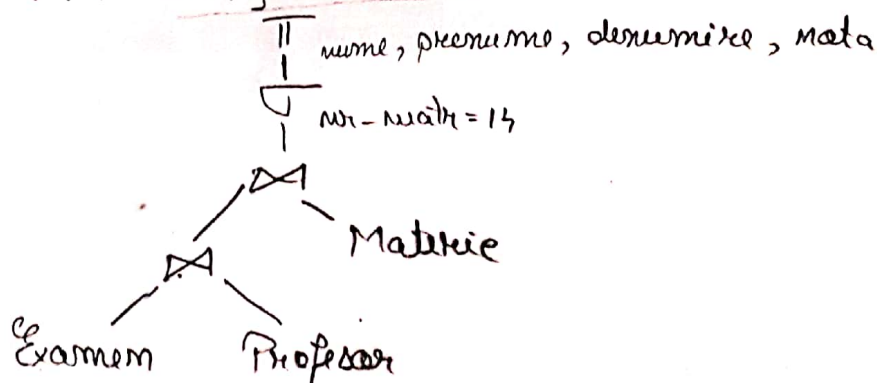 π nume, prenume, denumire, nota
σ nr-matr = 14
⋈
⋈ Materie
Examen Profesor